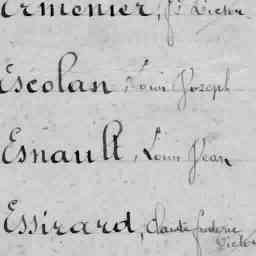 Armenier, J. Victor
Escolan, Louis Joseph
Esnault, Louis Jean
Essirard, Claude frédéric
Victor